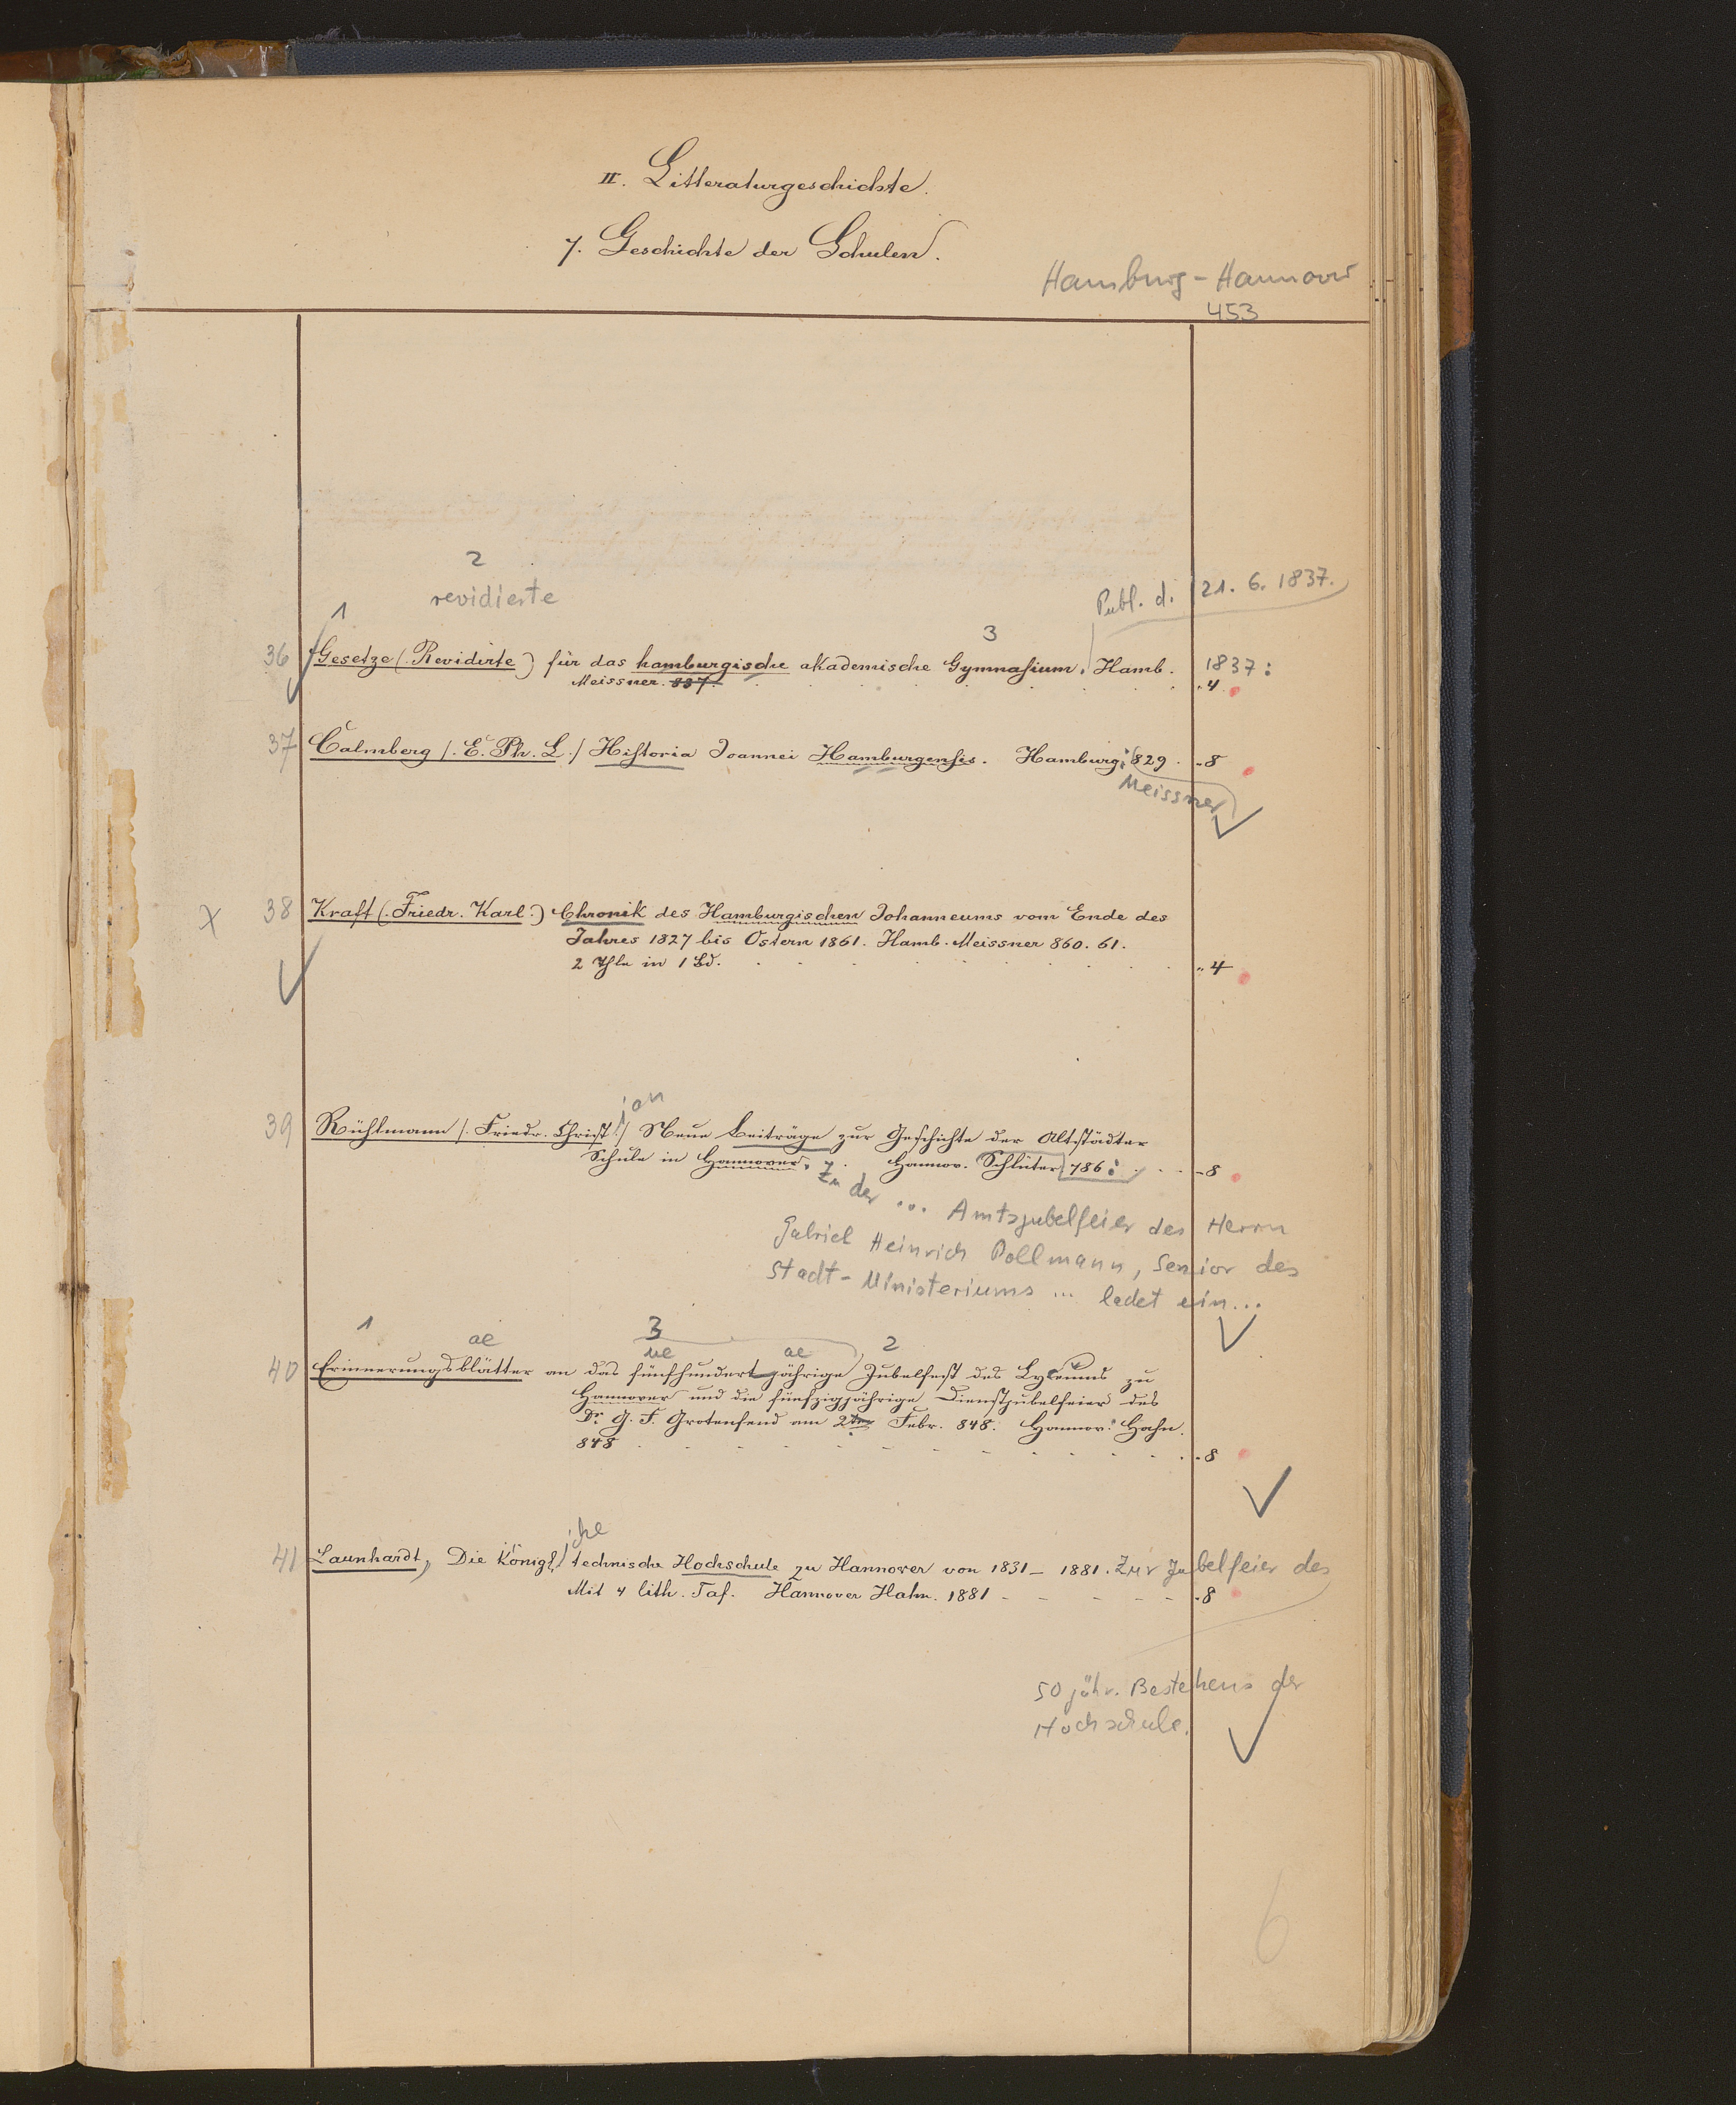 II. Litteraturgeschichte.
7. Geschichte der Schulen.
Hamburg - Hannover
453
2
revidierte
1
Publ. d. 21. 6. 1837.
3
36 Gesetze (. Revidirte) für das hamburgische akademische Gymnasium. Hamb. 1837:
Meissner. 837. „ 4
37 Calmberg /. E. Ph. L ./ Historia Joannei Hamburgensis. Hamburg: 829. - 8
Meissner
X 38 Kraft (. Friedr. Karl.) Chronik des Hamburgischen Johanneums vom Ende des
Jahres 1827 bis Ostern 1861. Hamb. Meissner 860. 61.
2 Thle in 1 Bd. „ 4
ian
39 Rühlmann /. Friedr. Christ ./ Neue Beiträge zur Geschichte der Altstädter
Schule in Hannover. Hannov. Schlüter 786: - 8
Zu der ... Amtsjubelfeier des Herrn
Gabriel Heinrich Pollmann, Senior des
Stadt-Ministeriums ... ladet ein ...
1 ae 3 ue ae 2
40 Erinnerungsblätter an das fünfhundertjährige Jubelfest des Lyceums zu
Hannover und die fünfzigjährige Dienstjubelfeier des
Dr G. F. Grotenfend am 2ten Febr. 848. Hannov: Hahn.
848 - 8
iche
41 Launhardt, Die Königl. technische Hochschule zu Hannover von 1831 - 1881. Zur Jubelfeier des
Mit 4 lith. Taf. Hannover Hahn. 1881 - 8
50 jähr. Bestehens der
Hochschule.
6